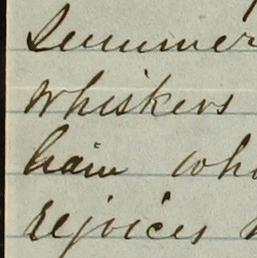 Summer
whiskers
hair who
rejoices